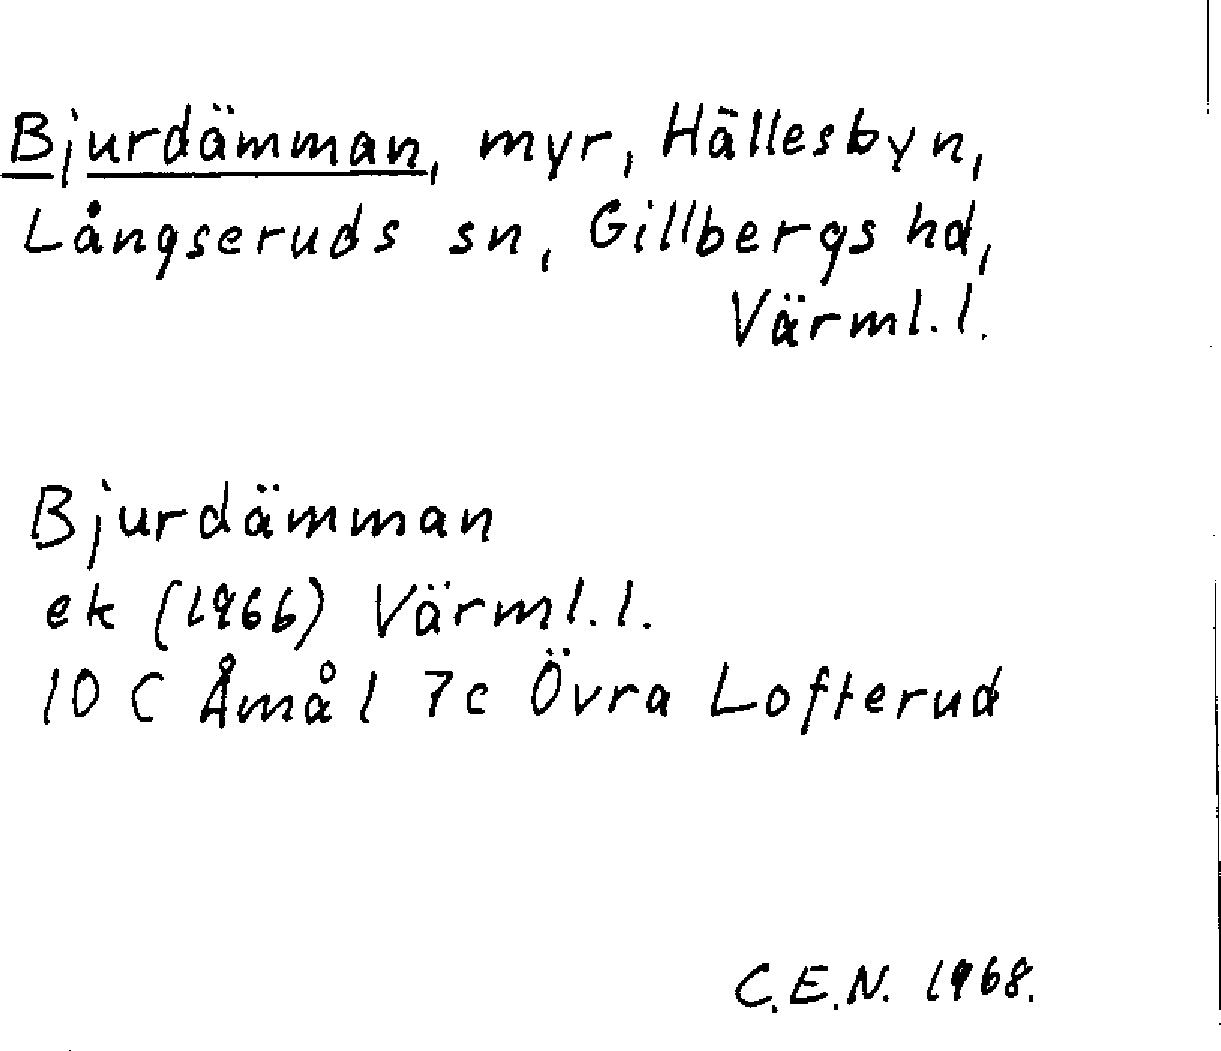 Bjurdämman, myr, Hällesbyn,
Långseruds sn, Gillbergs hd,
Värml. l.
Bjurdämman
ek (1966) Värml. l.
10 C Åmål 7c Övra Lofterud
C.E.N. 1968.